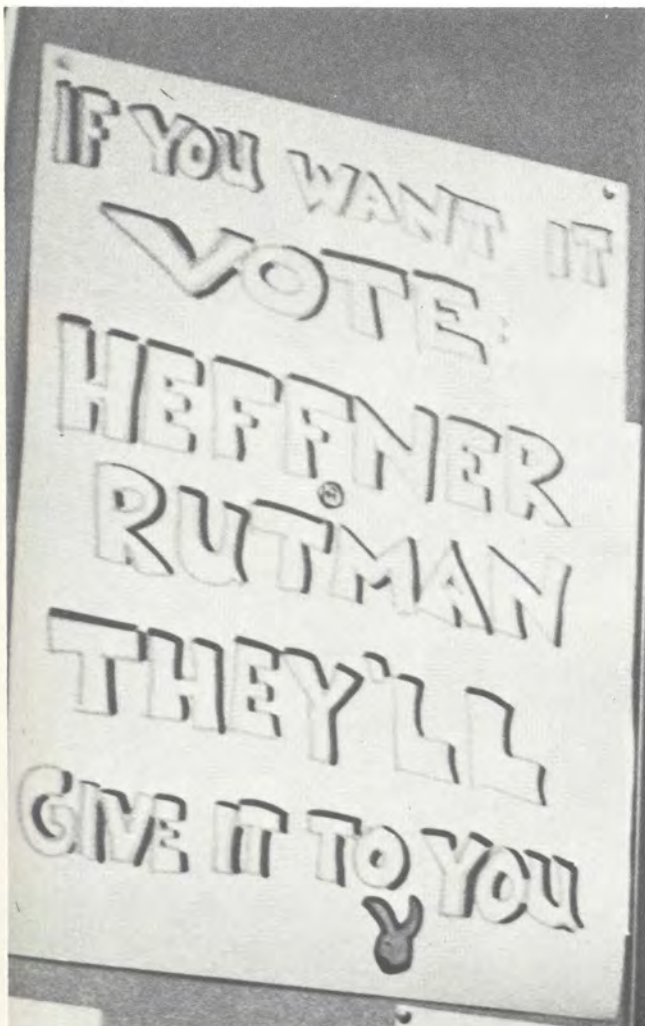 IF YOU WANT IT
VOTE:
HEFFNER
&
RUTMAN
THEY'LL
GIVE IT TO YOU